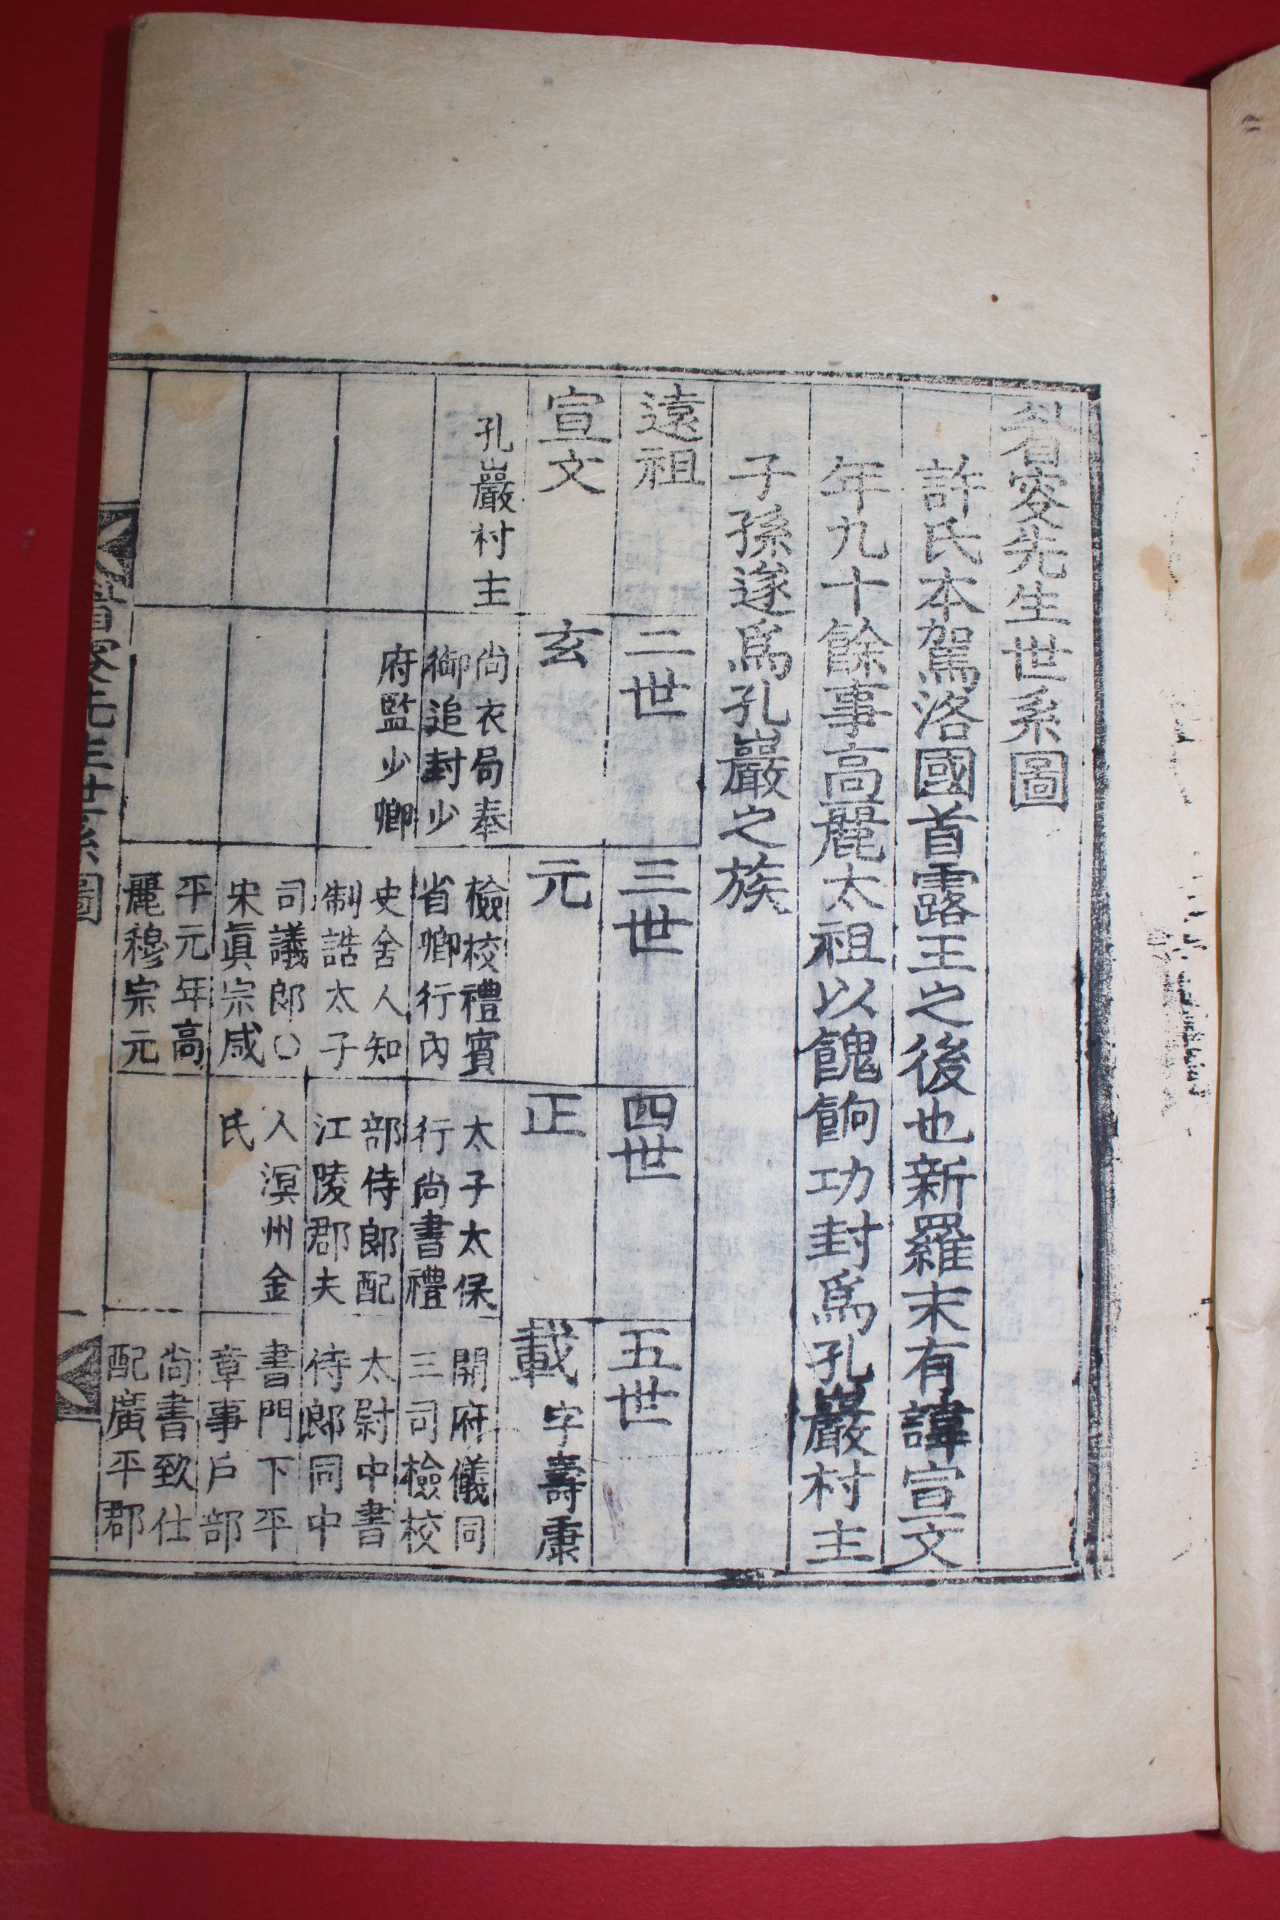 眉叜先生世系圖
許氏本駕洛國首露王之後也新羅末有諱宣文
年九十餘事高麗太祖以餽餉功封爲孔巖村主
子孫遂爲孔巖之族
遠祖
宣文
孔巖村主
二世
玄
尚衣局奉
御追封少
府監少卿
三世
元
檢校禮賓
省卿行內
史舍人知
制誥太子
司議郎○
宋眞宗咸
平元年高
麗穆宗元
四世
正
太子太保
行尚書禮
部侍郎配
江陵郡夫
人溟州金
氏
五世
載 字壽康
開府儀同
三司檢校
太尉中書
侍郎同中
書門下平
章事戶部
尚書致仕
配廣平郡
眉叜先生世系圖